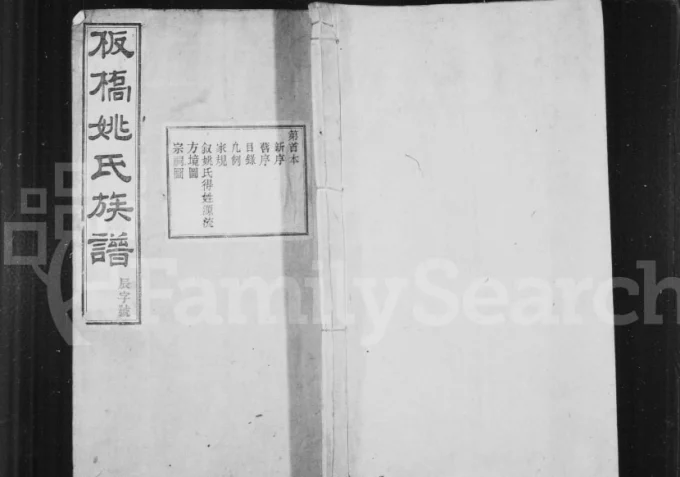 板橋姚氏族譜
辰字號
第首本
新序
舊序
目錄
凡例
家規
敘姚氏得姓源流
方境圖
宗祠圖
FamilySearch